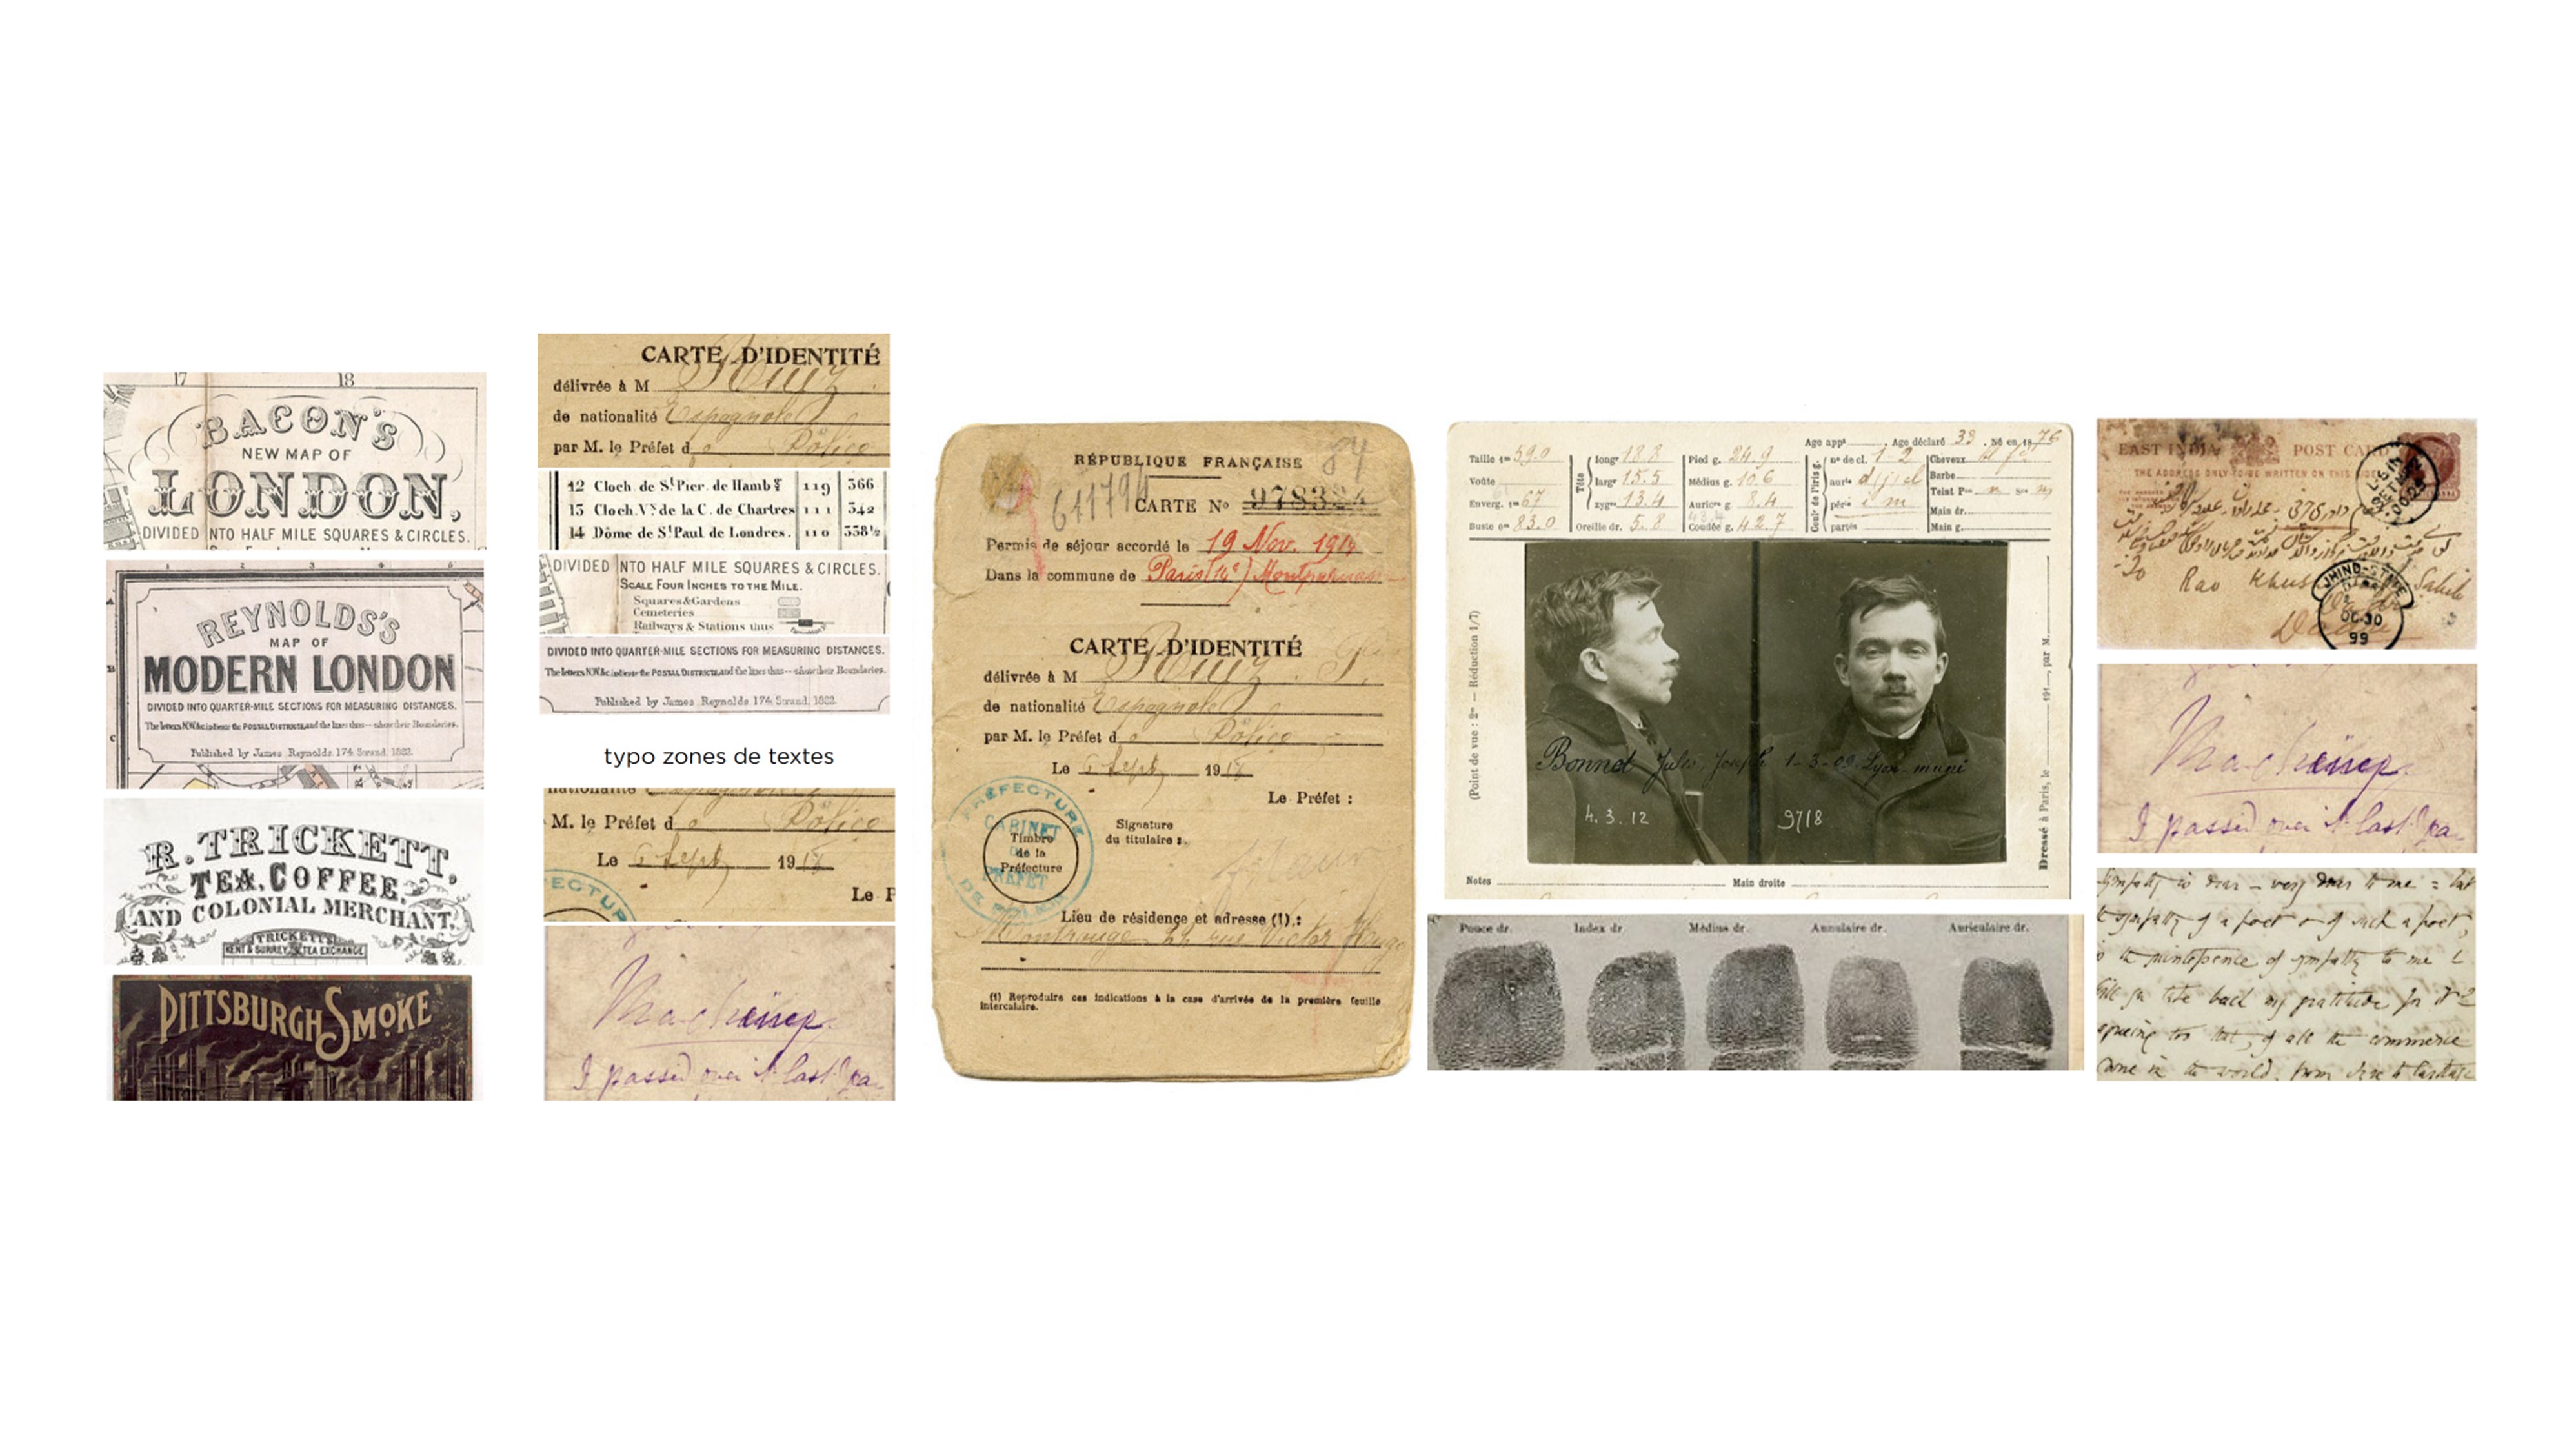 17 18
BACON'S
NEW MAP OF
LONDON,
DIVIDED INTO HALF MILE SQUARES & CIRCLES.
1 2 3 4 5
A
B
C
REYNOLDS'S
MAP OF
MODERN LONDON
DIVIDED INTO QUARTER-MILE SECTIONS FOR MEASURING DISTANCES.
The letters N.W.&c. indicate the POSTAL DISTRICTS, and the lines thus -- show their Boundaries.
Published by James Reynolds 174 Strand. 1882.
R. TRICKETT,
TEA, COFFEE,
AND COLONIAL MERCHANT,
TRICKETT'S
KENT & SURREY TEA EXCHANGE
PITTSBURGH SMOKE
CARTE D'IDENTITÉ
délivrée à M Ruiz
de nationalité Espagnole
par M. le Préfet de Police
12 Cloch. de St Pier. de Hambg 119 366
13 Cloch. Vx de la C. de Chartres 111 342
14 Dôme de St Paul de Londres. 110 338½
DIVIDED INTO HALF MILE SQUARES & CIRCLES.
SCALE FOUR INCHES TO THE MILE.
Squares & Gardens
Cemeteries
Railways & Stations thus
DIVIDED INTO QUARTER-MILE SECTIONS FOR MEASURING DISTANCES.
The letters N.W.&c. indicate the POSTAL DISTRICTS, and the lines thus -- show their Boundaries.
Published by James Reynolds 174 Strand. 1882.
typo zones de textes
nationalité Espagnole
M. le Préfet de Police
Le 6 Sept 19
Le P
ECTU
I passed over
RÉPUBLIQUE FRANÇAISE
84
641794
CARTE No 978324
Permis de séjour accordé le 19 Nov. 191
Dans la commune de Paris (14e) Montparnasse
CARTE D'IDENTITÉ
délivrée à M Ruiz
de nationalité Espagnole
par M. le Préfet de Police
Le 6 Sept 19
Le Préfet :
PRÉFECTURE
CABINET
PRÉFET
Timbre
de la
Préfecture
Signature
du titulaire :
Lieu de résidence et adresse (1) :
Montrouge 22 rue Victor Hugo
(1) Reproduire ces indications à la case d'arrivée de la première feuille
intercalaire.
Age appt Age déclaré 33 Né en 1876
Taille 1m 59.0
Voûte
Enverg. 1m 67
Buste 0m 83.0
Tête
longr 18.8
largr 15.5
zygue 13.4
Oreille dr. 5.8
Pied g. 24.9
Médius g. 10.6
Auricre g. 8.4
Coudée g. 42.7
Coulr de l'iris g.
no de cl. 1-2
aurle
périe
partés
Cheveux
Barbe
Teint Pre Sre
Main dr.
Main g.
(Point de vue : 2m — Réduction 1/7)
Dressé à Paris, le 191 , par M.
Bonnot Jules, Joseph 1-3-09 Lyon
4.3.12
9718
Notes
Main droite
Pouce dr. Index dr. Médius dr. Annulaire dr. Auriculaire dr.
EAST INDIA POST CARD
THE ADDRESS ONLY TO BE WRITTEN ON THIS SIDE
375
Rao Sahib
JHIND-STATE
OC.30
99
I passed over
sympathy is dear — very dear to me = but
the sympathy of a poet & of such a poet,
the quintessence of sympathy to me
Will you take back my gratitude for it?
agreeing too that, of all the commerce
done in the world, from Tyre to Carthage